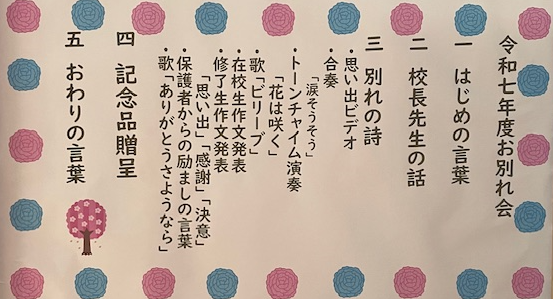 令和七年度お別れ会
一 はじめの言葉
二 校長先生の話
三 別れの詩
・思い出ビデオ
・合奏
「涙そうそう」
・トーンチャイム演奏
「花は咲く」
・歌「ビリーブ」
・在校生作文発表
・修了生作文発表
「思い出」「感謝」「決意」
・保護者からの励ましの言葉
・歌「ありがとうさようなら」
四 記念品贈呈
五 おわりの言葉